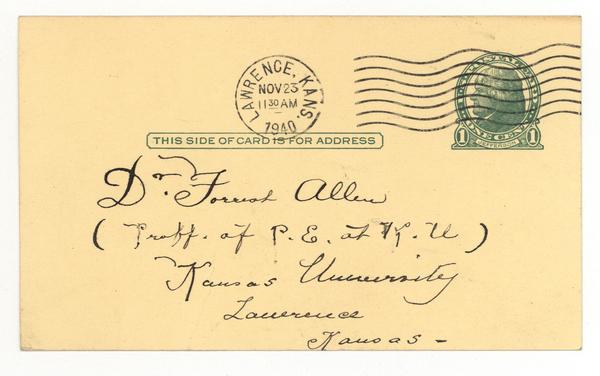 LAWRENCE, KANS.
NOV 23
11 30 AM
1940
1 ONE CENT 1
JEFFERSON
THIS SIDE OF CARD IS FOR ADDRESS
Dr. Forrest Allen
( Proff. of P. E. at K. U )
Kansas University
Lawrence
Kansas -